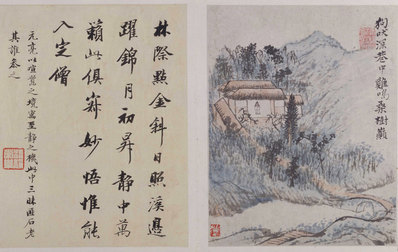 狗吠深巷中雞鳴桑樹巔
林際點金斜日照溪邊
躍錦月初昇靜中萬
籟此俱寂妙悟惟能
入定僧
元亮以喧驚之境寫至靜之機此中三昧匪石老
其誰參之